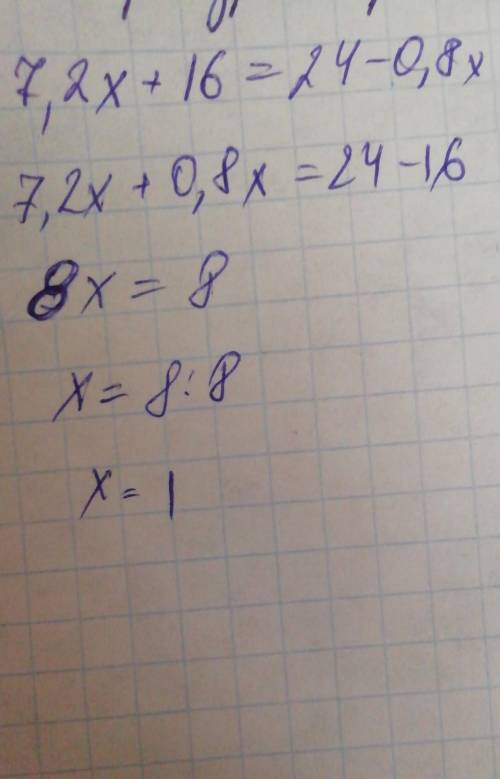 7,2x + 16 = 24 - 0,8x
7,2x + 0,8x = 24 - 16
8x = 8
x = 8 : 8
x = 1